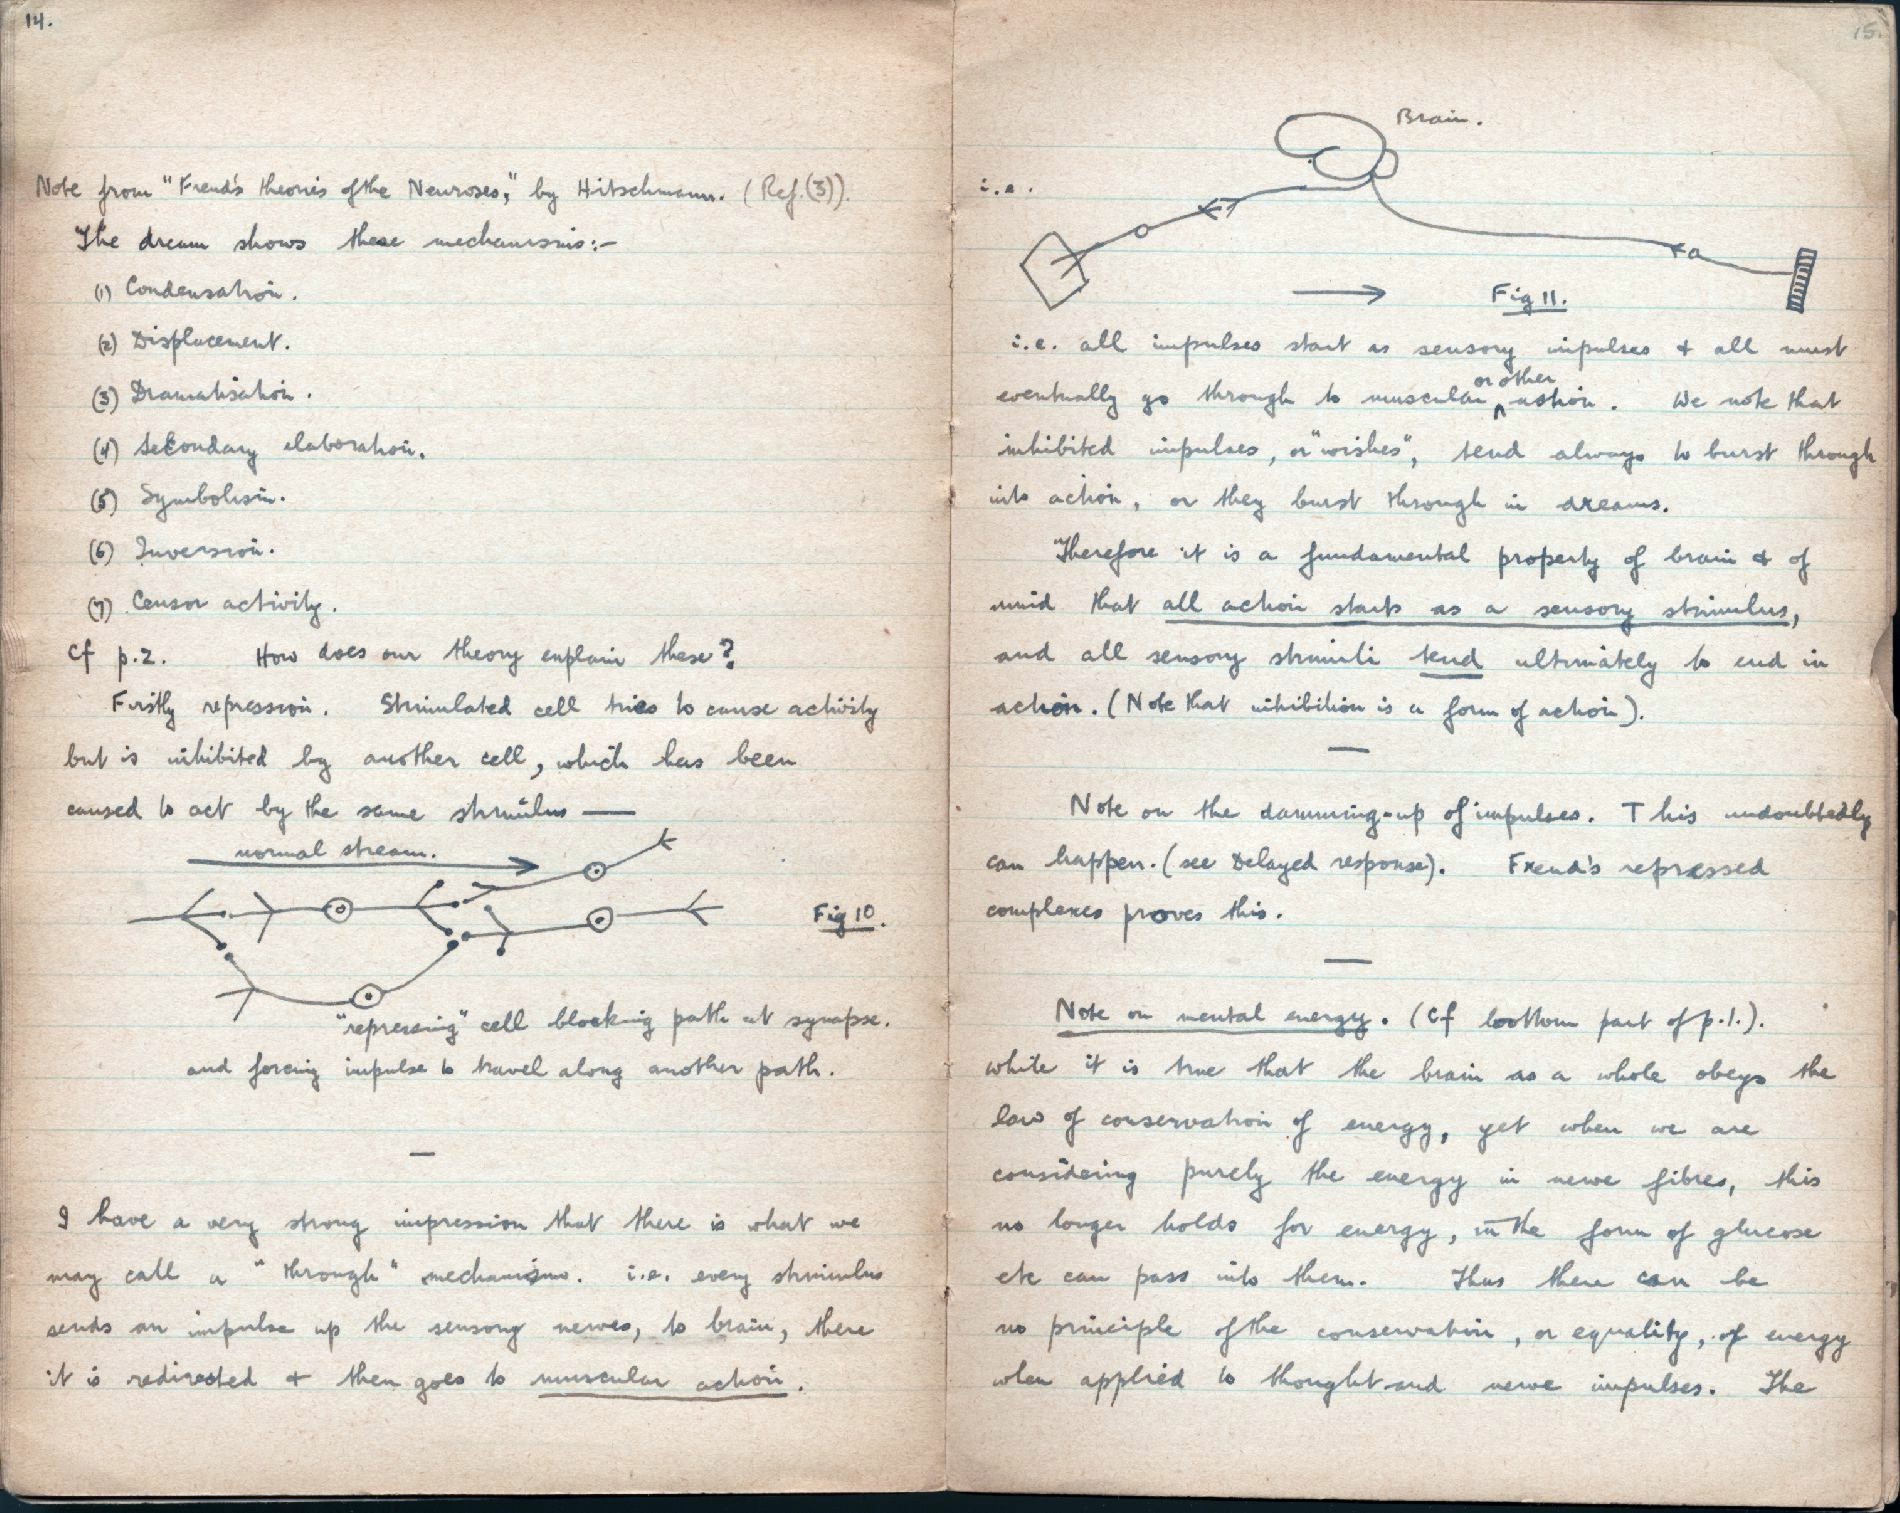 14.
Note from "Freud's theories of the Neuroses," by Hitschmann. (Ref.(3)).
The dream shows these mechanisms:-
(1) Condensation.
(2) Displacement.
(3) Dramatisation.
(4) Secondary elaboration.
(5) Symbolism.
(6) Inversion.
(7) Censor activity.
Cf p.2. How does our theory explain these?
Firstly repression. Stimulated cell tries to cause activity
but is inhibited by another cell, which has been
caused to act by the same stimulus —
normal stream.
Fig 10.
"repressing" cell blocking path at synapse.
and forcing impulse to travel along another path.
—
I have a very strong impression that there is what we
may call a "through" mechanism. i.e. every stimulus
sends an impulse up the sensory nerves, to brain, there
it is redirected & then goes to muscular action.
15.
Brain.
i.e.
Fig 11.
i.e. all impulses start as sensory impulses & all must
or other
eventually go through to muscular ^ action. We note that
inhibited impulses, or "wishes", tend always to burst through
into action, or they burst through in dreams.
Therefore it is a fundamental property of brain & of
mind that all action starts as a sensory stimulus,
and all sensory stimuli tend ultimately to end in
action. (Note that inhibition is a form of action).
—
Note on the damming-up of impulses. This undoubtedly
can happen. (see Delayed response). Freud's repressed
complexes proves this.
—
Note on mental energy. (Cf bottom part of p.1.).
while it is true that the brain as a whole obeys the
law of conservation of energy, yet when we are
considering purely the energy in nerve fibres, this
no longer holds for energy, in the form of glucose
etc can pass into them. Thus there can be
no principle of the conservation, or equality, of energy
when applied to thought and nerve impulses. The